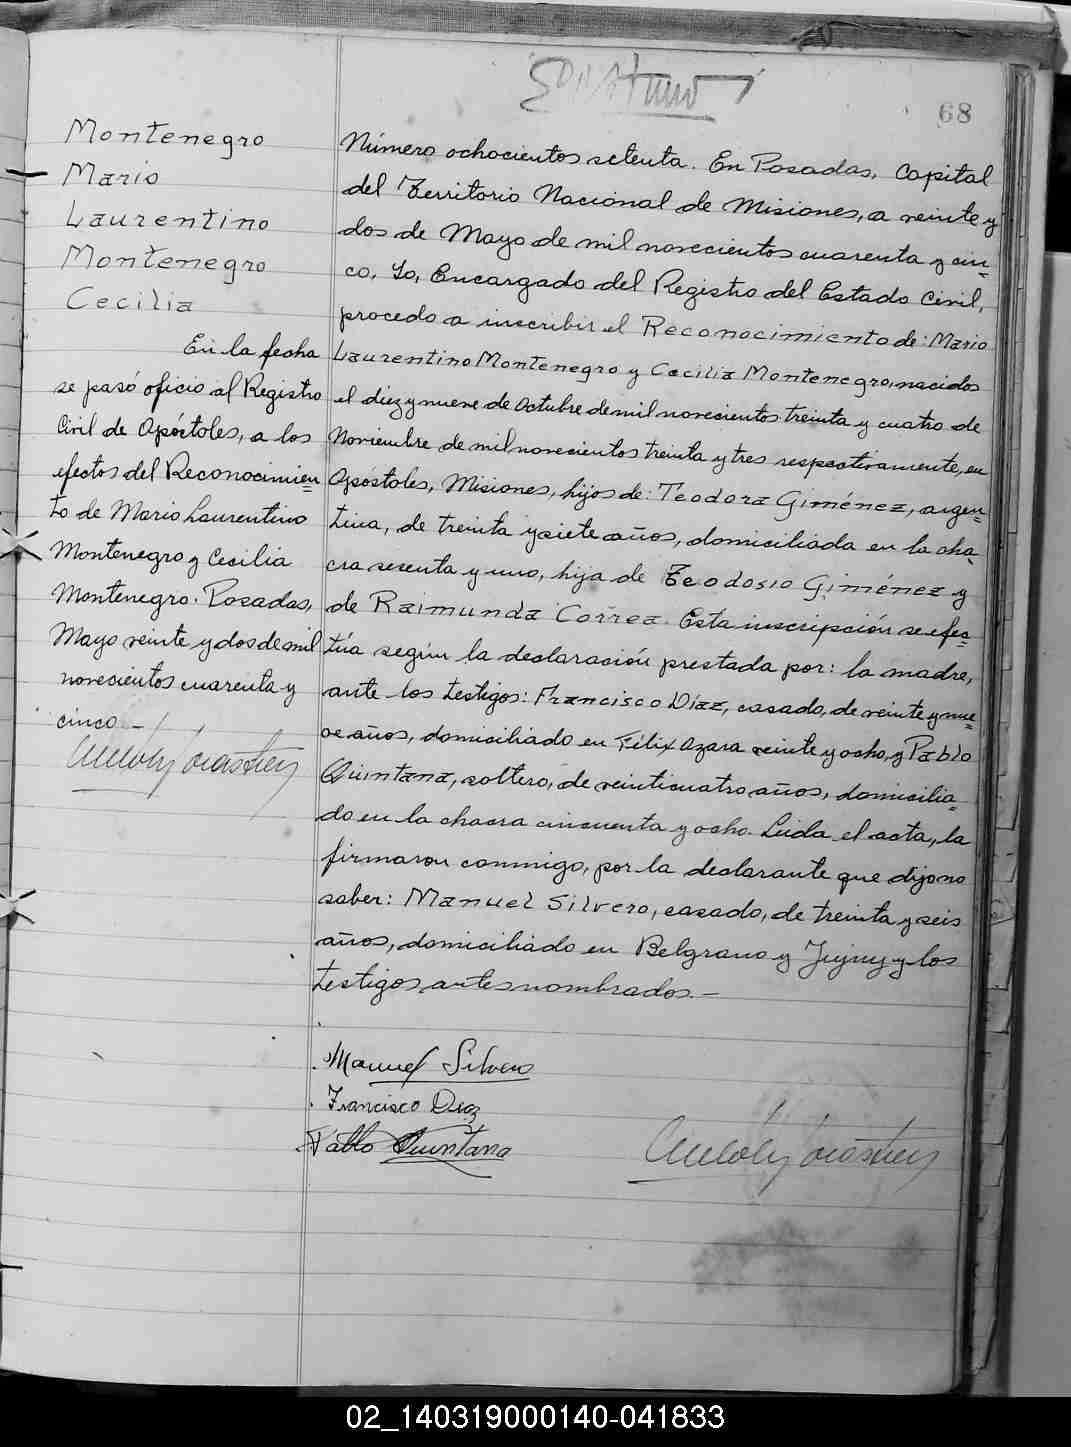 68
Montenegro
Mario
Laurentino
Montenegro
Cecilia
En la fecha
se pasó oficio al Registro
Civil de Apóstoles, a los
efectos del Reconocimien=
to de Mario Laurentino
Montenegro y Cecilia
Montenegro. Posadas,
Mayo veinte y dos de mil
novecientos cuarenta y
cinco.-
Número ochocientos setenta. En Posadas, Capital
del Territorio Nacional de Misiones, a veinte y
dos de Mayo de mil novecientos cuarenta y cin=
co, Yo, Encargado del Registro del Estado Civil,
procedo a inscribir el Reconocimiento de: Mario
Laurentino Montenegro y Cecilia Montenegro, nacidos
el diez y nueve de Octubre de mil novecientos treinta y cuatro de
Noviembre de mil novecientos treinta y tres respectivamente, en
Apóstoles, Misiones, hijos de: Teodora Giménez, argen=
tina, de treinta y siete años, domiciliada en la cha=
cra sesenta y uno, hija de Teodosio Giménez y
de Raimunda Correa. Esta inscripción se efec=
túa según la declaración prestada por: la madre,
ante los testigos: Francisco Díaz, casado, de veinte y nue=
ve años, domiciliado en Félix Azara veinte y ocho, y Pablo
Quintana, soltero, de veinticuatro años, domicilia=
do en la chacra cincuenta y ocho. Leida el acta, la
firmaron conmigo, por la declarante que dijo no
saber: Manuel Silvero, casado, de treinta y seis
años, domiciliado en Belgrano y Jujuy y los
testigos antes nombrados.-
Manuel Silvero
Francisco Diaz
Pablo Quintana
02_140319000140-041833